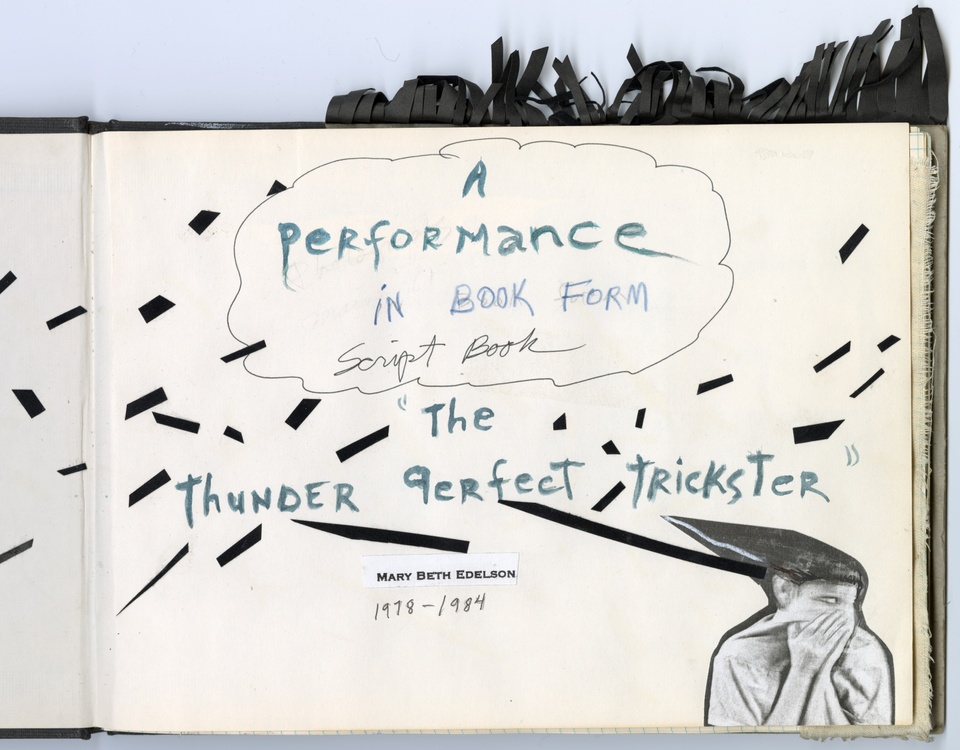 A
Performance
IN BOOK FORM
Script Book
"The
THUNDER Perfect TRICKSTER"
MARY BETH EDELSON
1978-1984